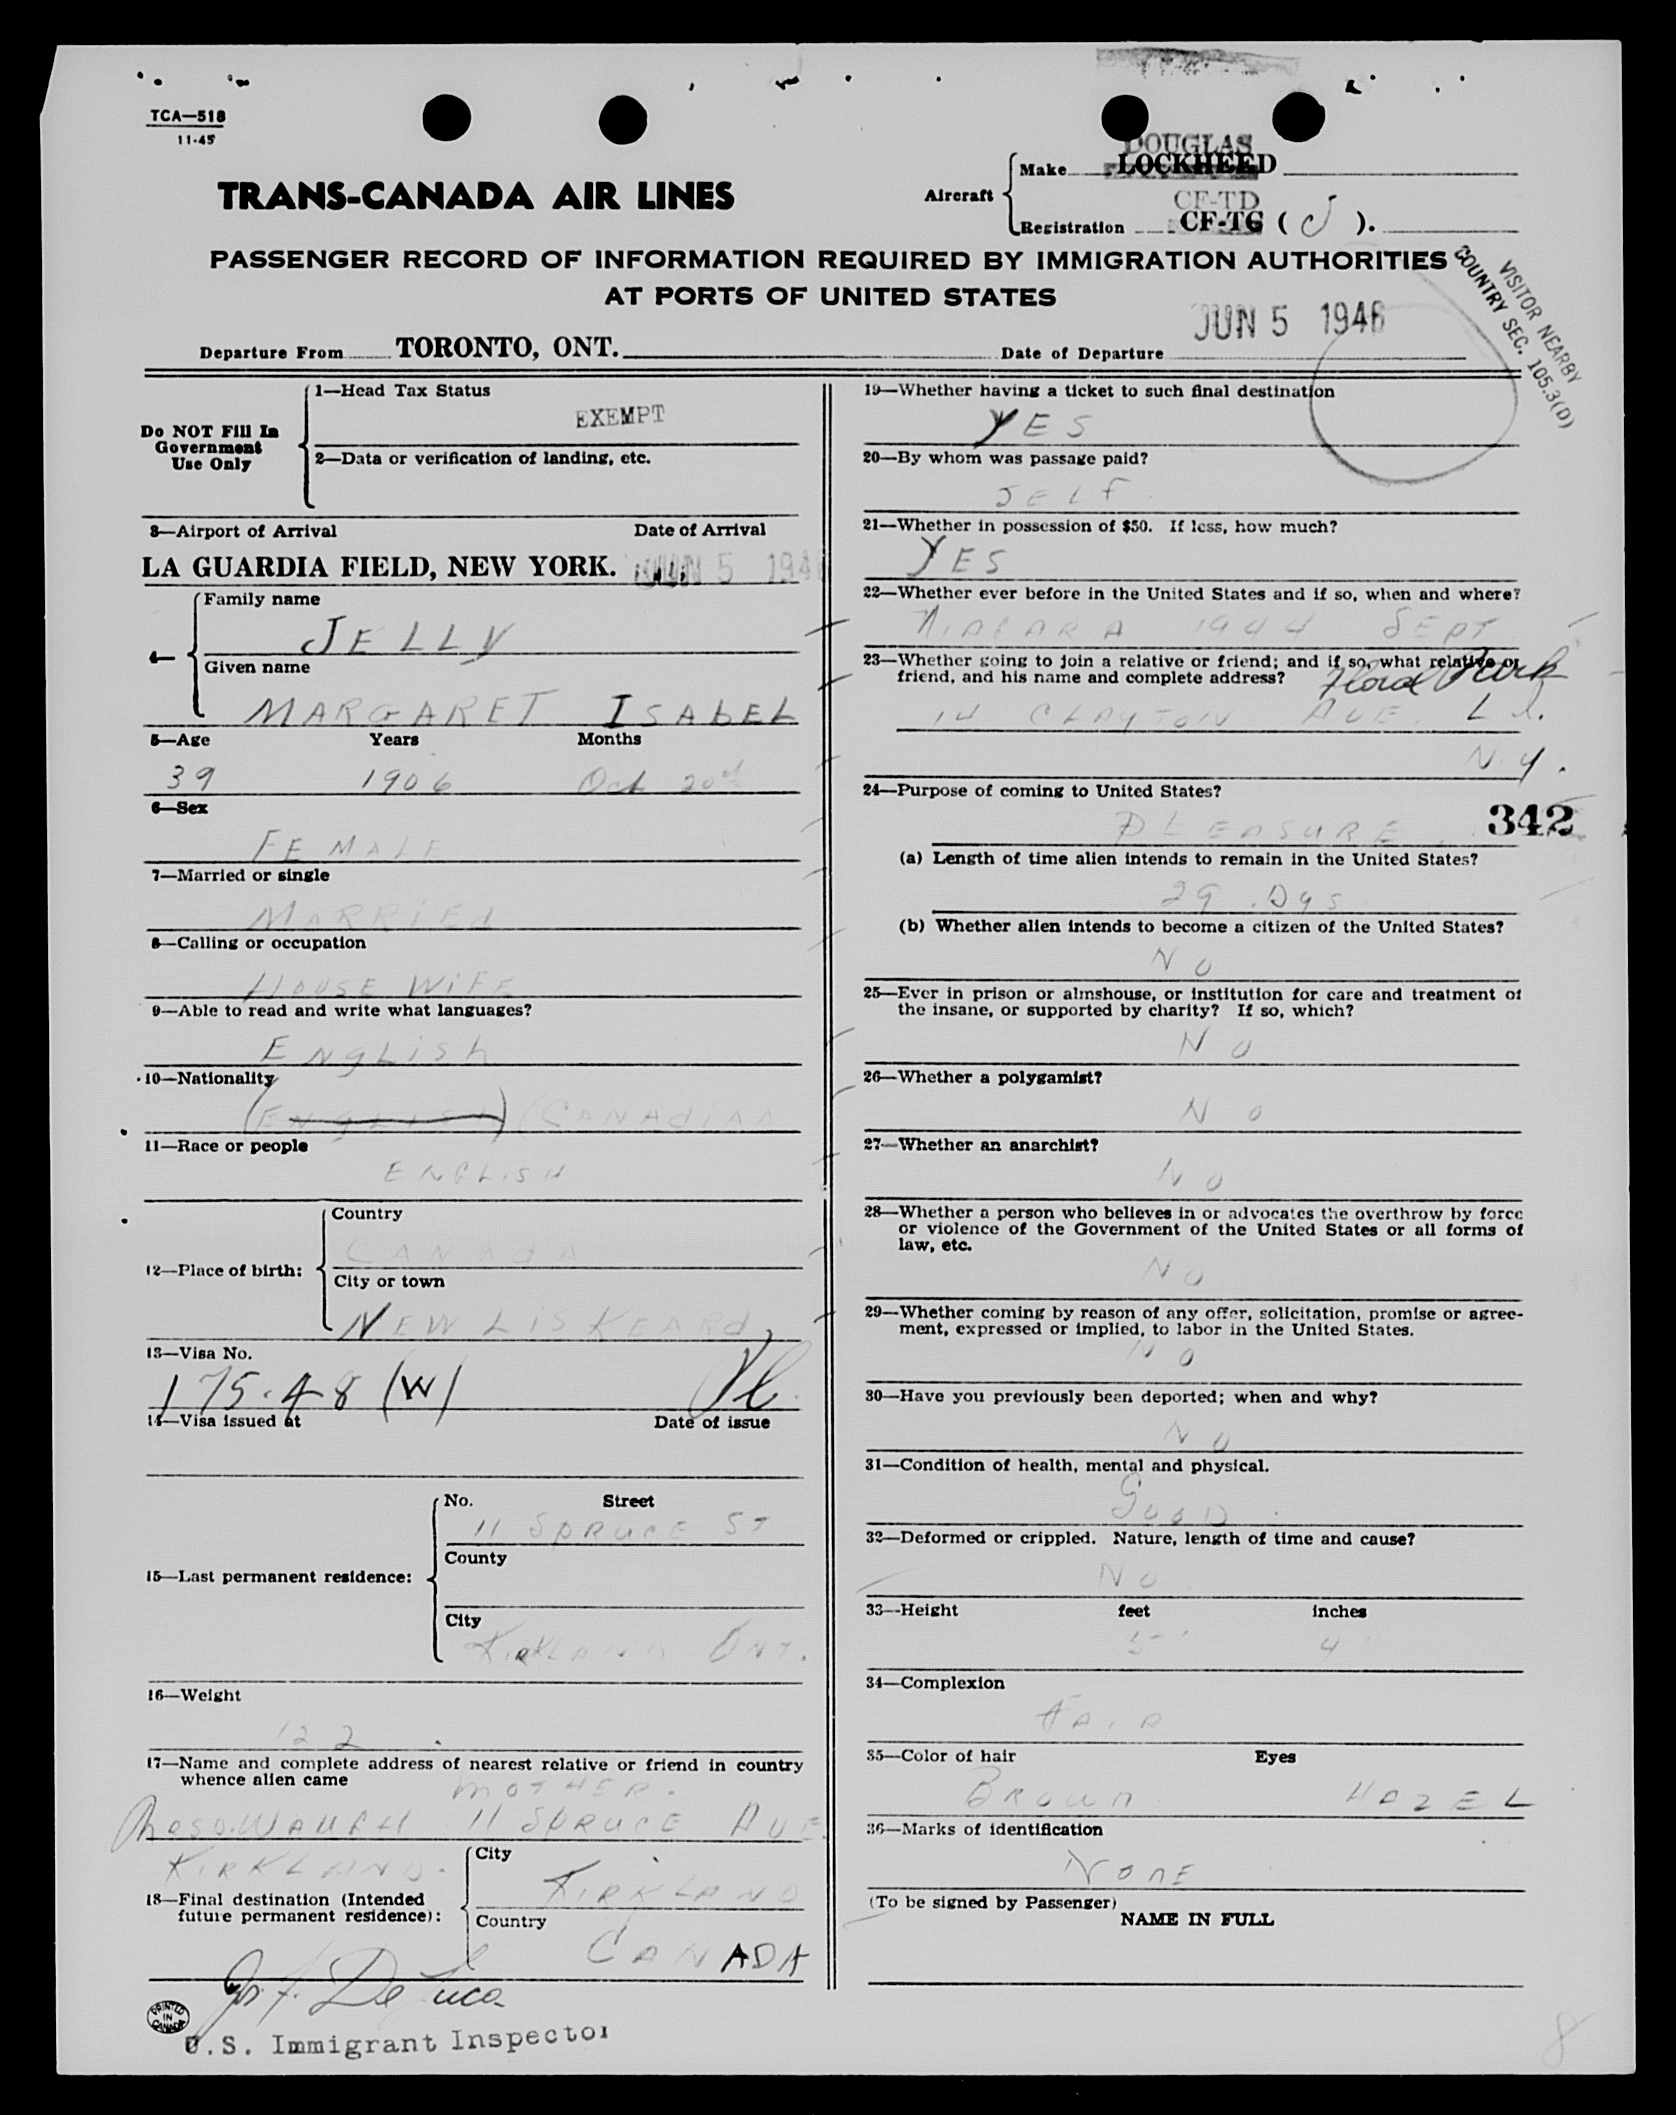 TCA—518
11-45
TRANS-CANADA AIR LINES
Aircraft
Make LOCKHEED
DOUGLAS
Registration CF-TG ( J ).
CF-TD
PASSENGER RECORD OF INFORMATION REQUIRED BY IMMIGRATION AUTHORITIES
AT PORTS OF UNITED STATES
VISITOR NEARBY
COUNTRY SEC. 105.3(D)
Departure From TORONTO, ONT.
Date of Departure JUN 5 1946
Do NOT Fill In
Government
Use Only
1—Head Tax Status
EXEMPT
2—Data or verification of landing, etc.
3—Airport of Arrival Date of Arrival
LA GUARDIA FIELD, NEW YORK. JUN 5 1946
4—
Family name
JELLY
Given name
MARGARET ISABEL
5—Age Years Months
39 1906 Oct 20
6—Sex
FEMALE
7—Married or single
MARRIEd
8—Calling or occupation
HOUSE WIFE
9—Able to read and write what languages?
ENgLish
10—Nationality
(ENgLISH) (CANAdIAN
11—Race or people
ENGLISH
12—Place of birth:
Country
CANAdA
City or town
NEW LISKEARd
13—Visa No.
175.48 (W)
14—Visa issued at Date of issue
15—Last permanent residence:
No. Street
11 SPRUCE ST
County
City
KIRKLAND ONT.
16—Weight
122
17—Name and complete address of nearest relative or friend in country
whence alien came
MOTHER.
WAUGH 11 SPRUCE AVE
KIRKLAND.
18—Final destination (Intended
future permanent residence):
City
KIRKLAND
Country
CANADA
De Luca
U.S. Immigrant Inspector
PRINTED
IN
CANADA
19—Whether having a ticket to such final destination
YES
20—By whom was passage paid?
SELF
21—Whether in possession of $50. If less, how much?
YES
22—Whether ever before in the United States and if so, when and where?
NIAGARA 1944 SEPT
23—Whether going to join a relative or friend; and if so, what relative or
friend, and his name and complete address?
Floral Park
14 CLAYTON AVE L.I.
N.Y.
24—Purpose of coming to United States?
PLEASURE
342
(a) Length of time alien intends to remain in the United States?
29 Dys
(b) Whether alien intends to become a citizen of the United States?
NO
25—Ever in prison or almshouse, or institution for care and treatment of
the insane, or supported by charity? If so, which?
NO
26—Whether a polygamist?
NO
27—Whether an anarchist?
NO
28—Whether a person who believes in or advocates the overthrow by force
or violence of the Government of the United States or all forms of
law, etc.
NO
29—Whether coming by reason of any offer, solicitation, promise or agree-
ment, expressed or implied, to labor in the United States.
NO
30—Have you previously been deported; when and why?
NO
31—Condition of health, mental and physical.
GOOD
32—Deformed or crippled. Nature, length of time and cause?
NO
33—Height feet inches
5 4
34—Complexion
FAIR
35—Color of hair Eyes
BROWN HAZEL
36—Marks of identification
NONE
(To be signed by Passenger)
NAME IN FULL
8